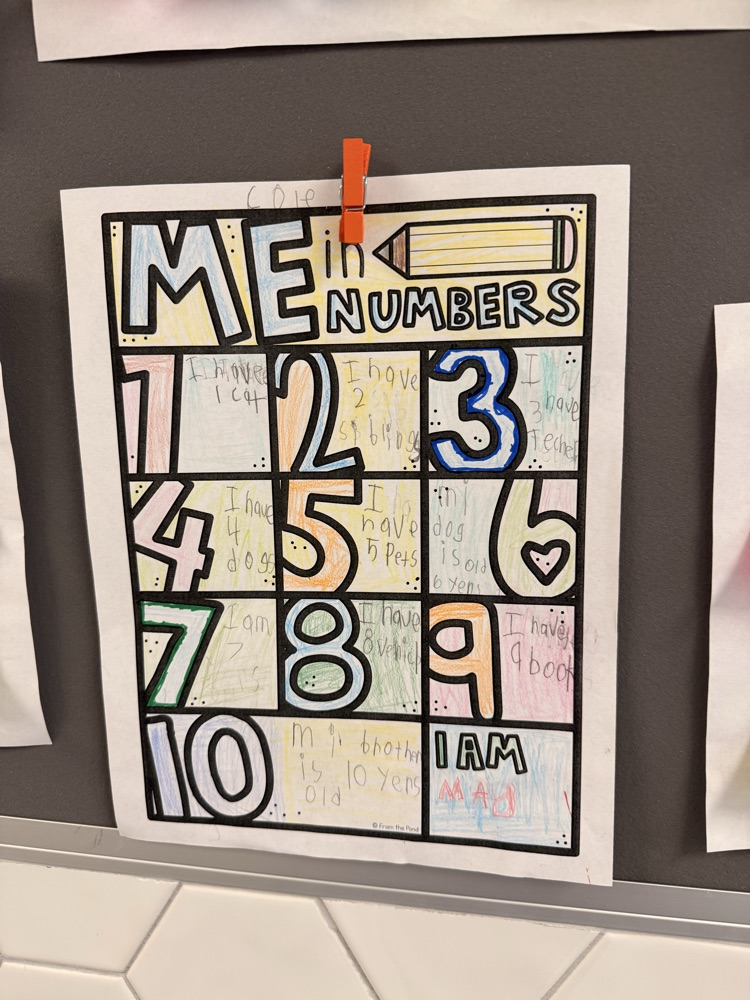 Cole
ME in
NUMBERS
1
I have
1 cat
2
I have
2
siblings
3
I
have
3
Techer
4
I have
4
dogs
5
I
have
5 Pets
mi
dog
is old
6 yens
6
7
I am
7
8
I have
8
9
I have
9 book
10
mi brother
is 10 yens
old
© From the Pond
I AM
MAd